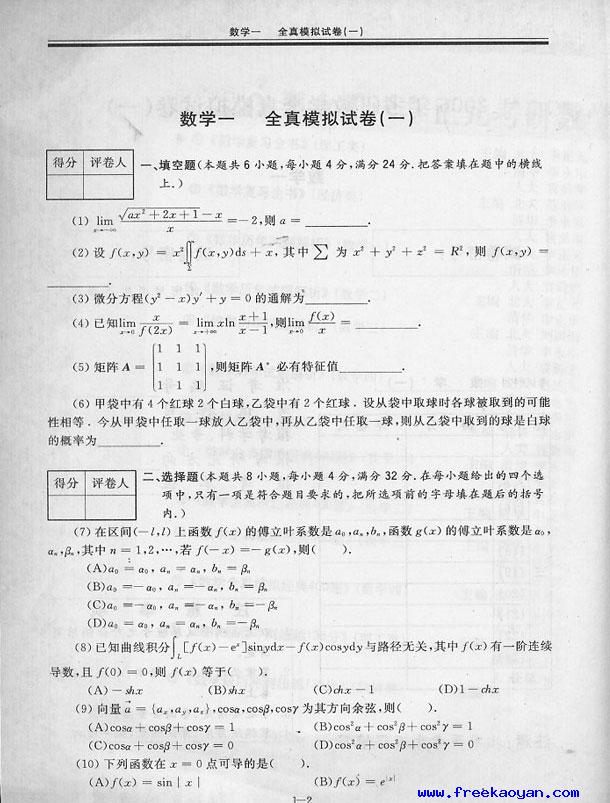 数学一 全真模拟试卷(一)
数学一 全真模拟试卷(一)
得分 评卷人
一、填空题(本题共 6 小题,每小题 4 分,满分 24 分.把答案填在题中的横线
上.)
(1) lim_{x→-∞} (√(ax²+2x+1)-x)/x =-2,则 a = ______.
(2) 设 f(x,y) = x²∯_Σ f(x,y)ds + x, 其中 ∑ 为 x² + y² + z² = R², 则 f(x,y) =
______.
(3) 微分方程(y² - x)y′ + y = 0 的通解为______.
(4) 已知lim_{x→0} x/f(2x) = lim_{x→+∞} xln (x+1)/(x-1),则lim_{x→0} f(x)/x = ______.
(5) 矩阵 A = [1 1 1; 1 1 1; 1 1 1],则矩阵 A* 必有特征值______.
(6) 甲袋中有 4 个红球 2 个白球,乙袋中有 2 个红球.设从袋中取球时各球被取到的可能
性相等.今从甲袋中任取一球放入乙袋中,再从乙袋中任取一球,则从乙袋中取到的球是白球
的概率为______.
得分 评卷人
二、选择题(本题共 8 小题,每小题 4 分,满分 32 分.在每小题给出的四个选
项中,只有一项是符合题目要求的,把所选项前的字母填在题后的括号
内.)
(7) 在区间(-l,l) 上函数 f(x) 的傅立叶系数是 a₀,aₙ,bₙ,函数 g(x) 的傅立叶系数是 α₀,
αₙ,βₙ,其中 n = 1,2,…,若 f(-x) =- g(x),则( ).
(A)a₀ = α₀, aₙ = αₙ, bₙ = βₙ
(B)a₀ =- α₀, aₙ =- αₙ, bₙ = βₙ
(C)a₀ =- α₀, aₙ =- αₙ, bₙ =- βₙ
(D)a₀ = α₀, aₙ = αₙ, bₙ = βₙ
(8) 已知曲线积分∫_L [f(x)-eˣ]sinydx-f(x)cosydy 与路径无关,其中 f(x) 有一阶连续
导数,且 f(0) = 0,则 f(x) 等于( ).
(A) - shx (B)shx (C)chx - 1 (D)1 - chx
(9) 向量 a⃗ = {aₓ,a_y,a_z},cosα,cosβ,cosγ 为其方向余弦,则( ).
(A)cosα + cosβ + cosγ = 1 (B)cos²α + cos²β + cos²γ = 1
(C)cosα + cosβ + cosγ = 0 (D)cos²α + cos²β + cos²γ = 0
(10) 下列函数在 x = 0 点可导的是( ).
(A)f(x) = sin | x | (B)f(x) = e^|x|
1—2
www.freekaoyan.com